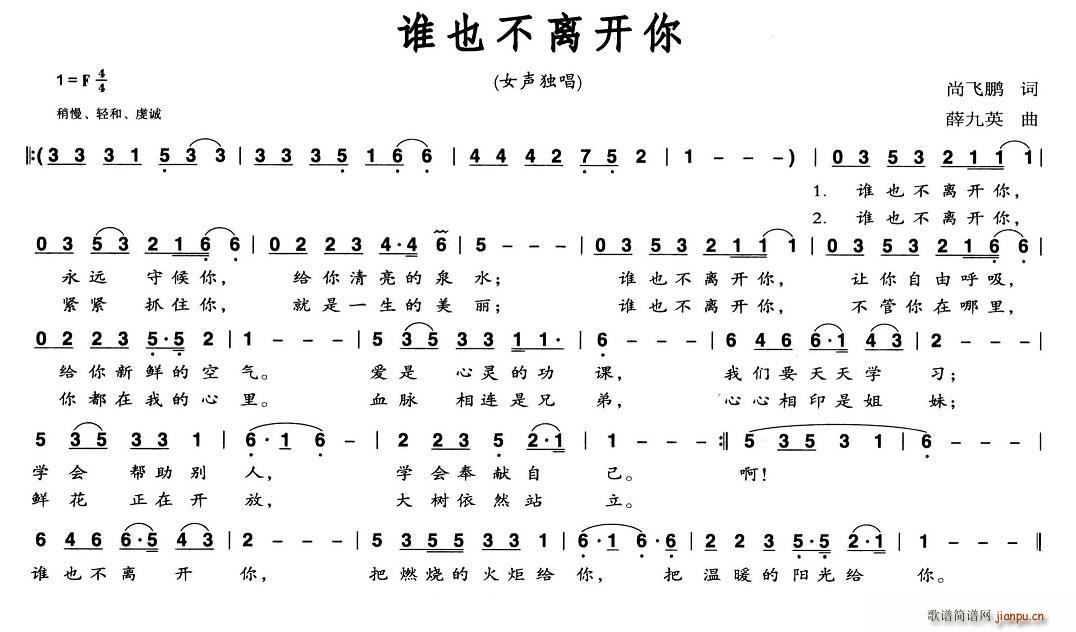 谁也不离开你
(女声独唱)
1=F 4/4
尚飞鹏 词
稍慢、轻和、虔诚
薛九英 曲
‖:(3 3 3 1 5 3 3 | 3 3 3 5 1 6 6 | 4 4 4 2 7 5 2 | 1 - - -) | 0 3 5 3 2 1 1 1 |
1. 谁也不离开你,
2. 谁也不离开你,
0 3 5 3 2 1 6 6 | 0 2 2 3 4·4 6 | 5 - - - | 0 3 5 3 2 1 1 1 | 0 3 5 3 2 1 6 6 |
永远 守候你, 给你清亮的泉水; 谁也不离开你, 让你自由呼吸,
紧紧 抓住你, 就是一生的美丽; 谁也不离开你, 不管你在哪里,
0 2 2 3 5·5 2 | 1 - - - | 5 3 5 3 3 1 1· | 6 - - - | 6 4 6 6·1 4 3 | 2 - - - |
给你新鲜的空气。 爱是 心灵的功课, 我们要天天学习;
你都在我的心里。 血脉 相连是兄弟, 心心相印是姐妹;
5 3 5 3 3 1 | 6·1 6 - | 2 2 3 5 2·1 | 1 - - - :‖ 5 3 5 3 1 | 6 - - - |
学会 帮助别人, 学会奉献自己。 啊!
鲜花 正在开放, 大树依然站立。
6 4 6 6·5 4 3 | 2 - - - | 5 3 5 5 3 3 1 | 6·1 6·6 | 2 2 3 5·5 2·1 | 1 - - - ‖
谁也不离开你, 把燃烧的火炬给你, 把温暖的阳光给你。
歌谱简谱网 jianpu.cn